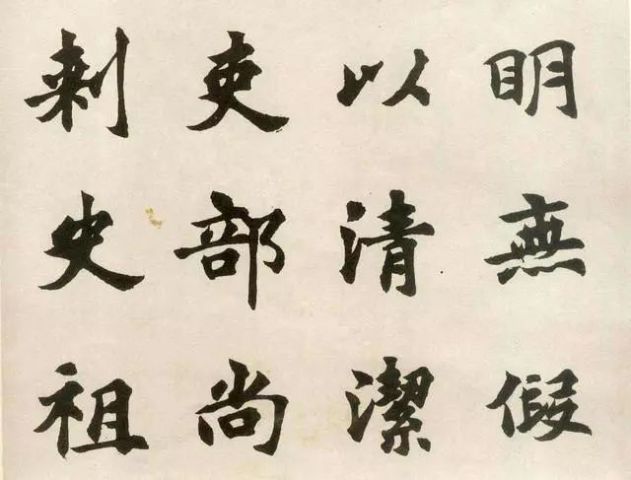 明無假
以清潔
吏部尚
刺史祖